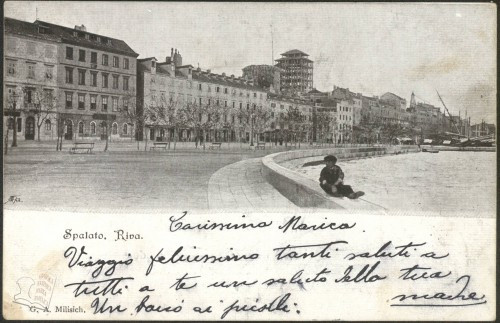 Spalato, Riva.
Carissima Marica
Viaggio felicissimo tanti saluti a
tutti a te un saluto della tua
Un bacio ai piccoli. madre
G. A. Milisich.